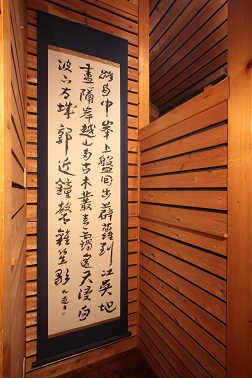 路自中峯上盤回出薜蘿到江吳地
盡隔岸越山多古木叢青靄遙天浸白
波下方城郭近鐘磬雜笙歌